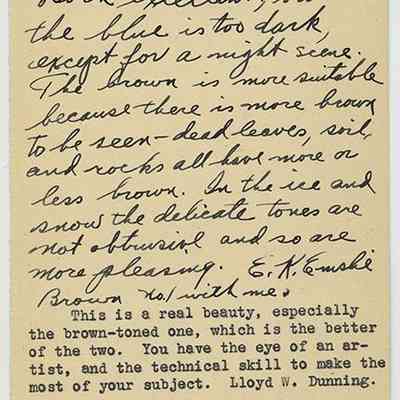 the blue is too dark,
except for a night scene.
The brown is more suitable
because there is more brown
to be seen - dead leaves, soil,
and rocks all have more or
less brown. In the ice and
snow the delicate tones are
not obtrusive and so are
more pleasing. E. K. Emslie
Brown no. 1 with me.
This is a real beauty, especially
the brown-toned one, which is the better
of the two. You have the eye of an ar-
tist, and the technical skill to make the
most of your subject. Lloyd W. Dunning.